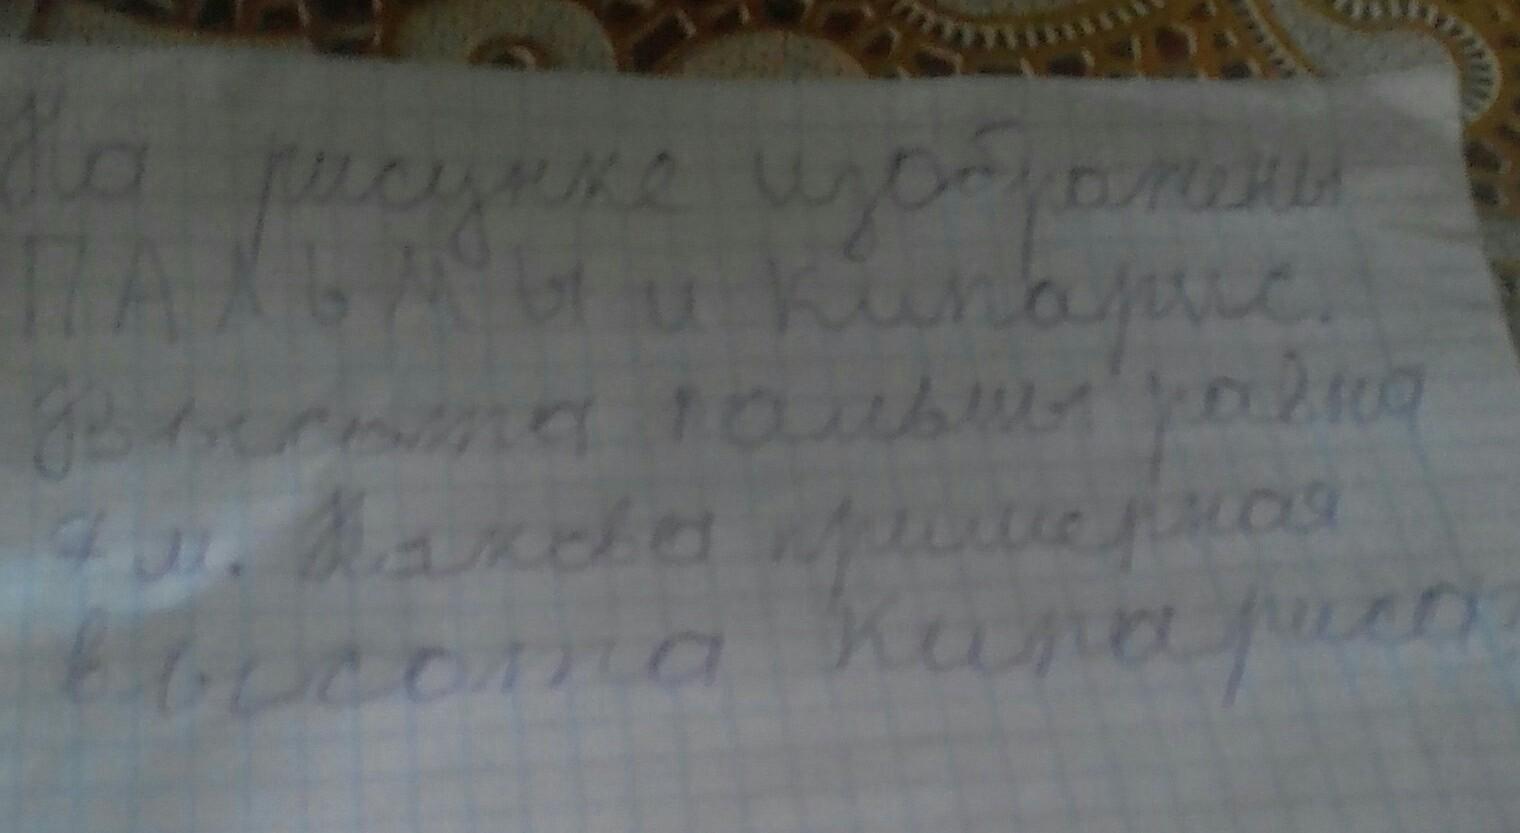 На рисунке изображены
ПАЛЬМЫ и кипарис.
Высота пальмы равна
м. Какова примерная
высота кипариса?